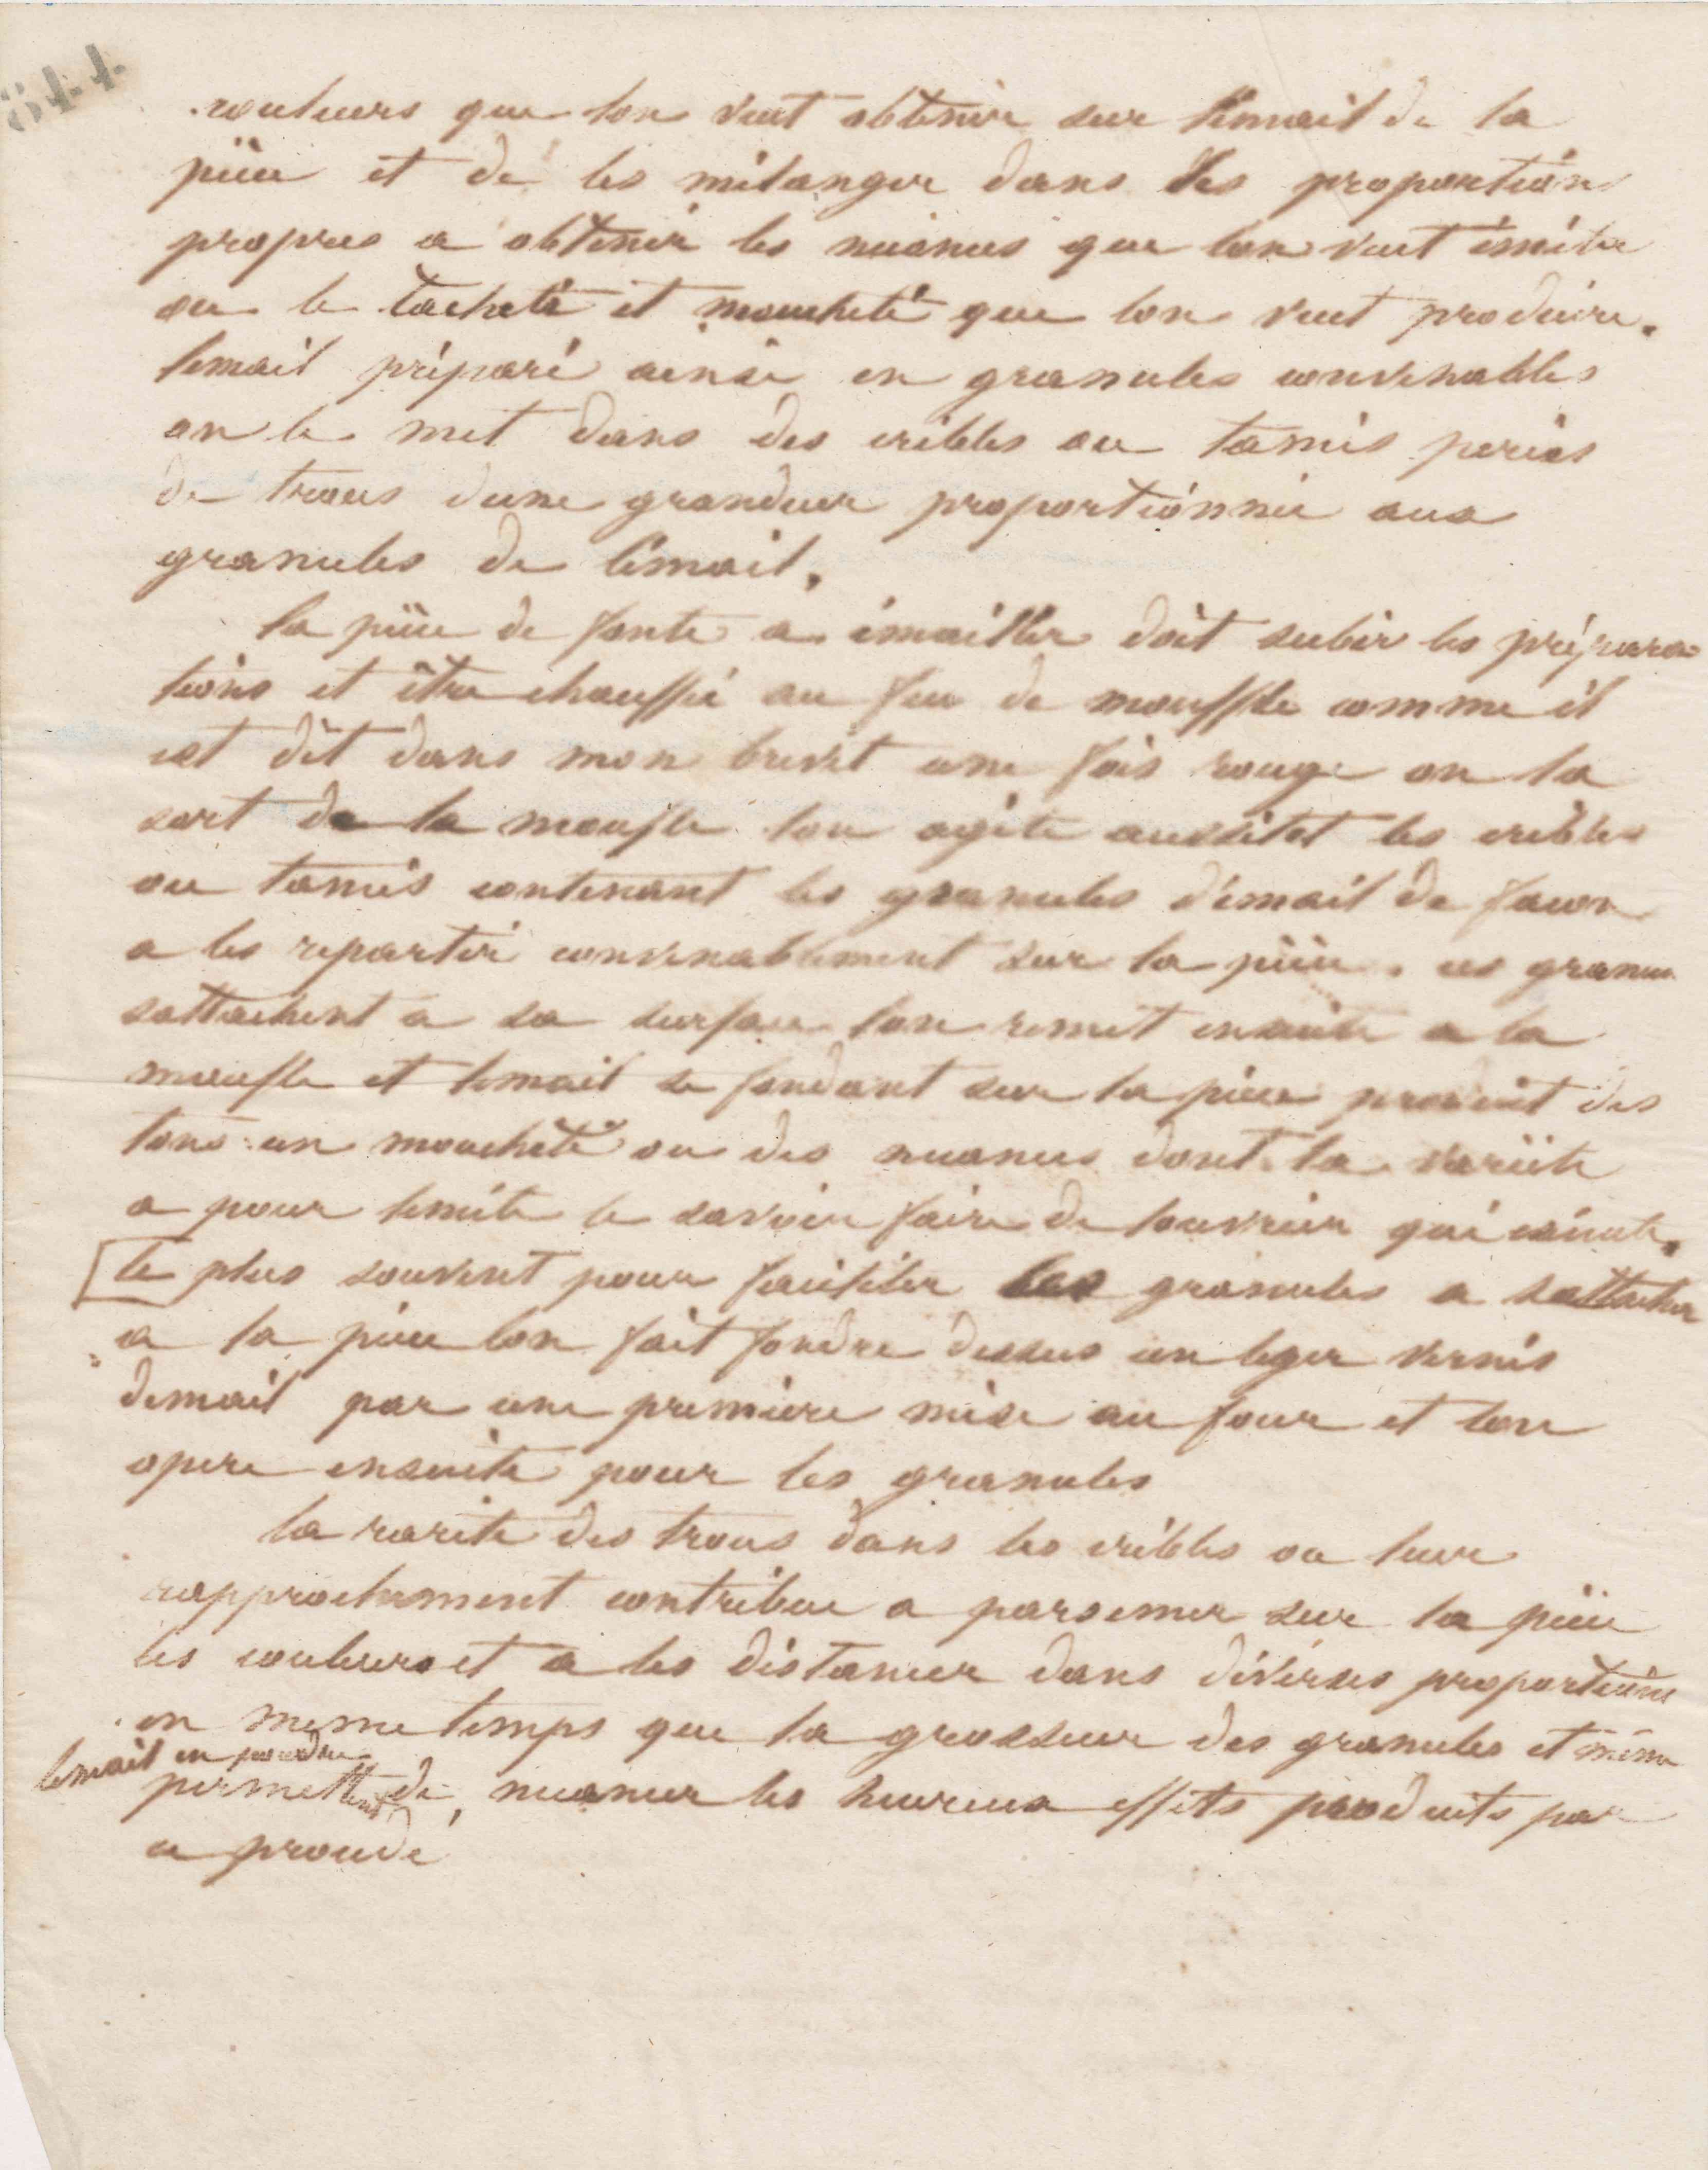 844
couleurs que lon veut obtenir sur lémail de la
piéce et de les mélanger dans les proportions
propres a obtenir les nuances que lon veut imiter
ou le tacheté et moucheté que lon veut produire.
lemail préparé ainsi en granules convenables
on le met dans des cribles ou tamis percés
de trous dune grandeur proportionnée aux
granules de lémail.
la piéce de fonte a émailler doit subir les prépara
tions et être chauffé au feu de mouffle comme il
est dit dans mon brevet une fois rouge on la
sort de la moufle lon agite aussitot les cribles
ou tamis contenant les granules démail de facon
a les repartir convenablement sur la piéce. ces granules
sattachent a sa surface lon remet ensuite a la
moufle et lemail se fondant sur la piéce produit des
tons un moucheté ou des nuances dont la varieté
a pour limite le savoir faire de louvrier qui exécute.
le plus souvent pour faciliter les granules a sattacher
a la piece lon fait fondre dessus un leger vernis
demail par une premiere mise au four et lon
opere ensuite pour les granules
la rareté des trous dans les cribles ou leur
rapprochement contribue a parsemer sur la piéce
les couleurs et a les distancer dans diverses proportions
en meme temps que la grosseur des granules et même
lemail en poudre
permettent de nuancer les heureux effets produits par
ce procédé